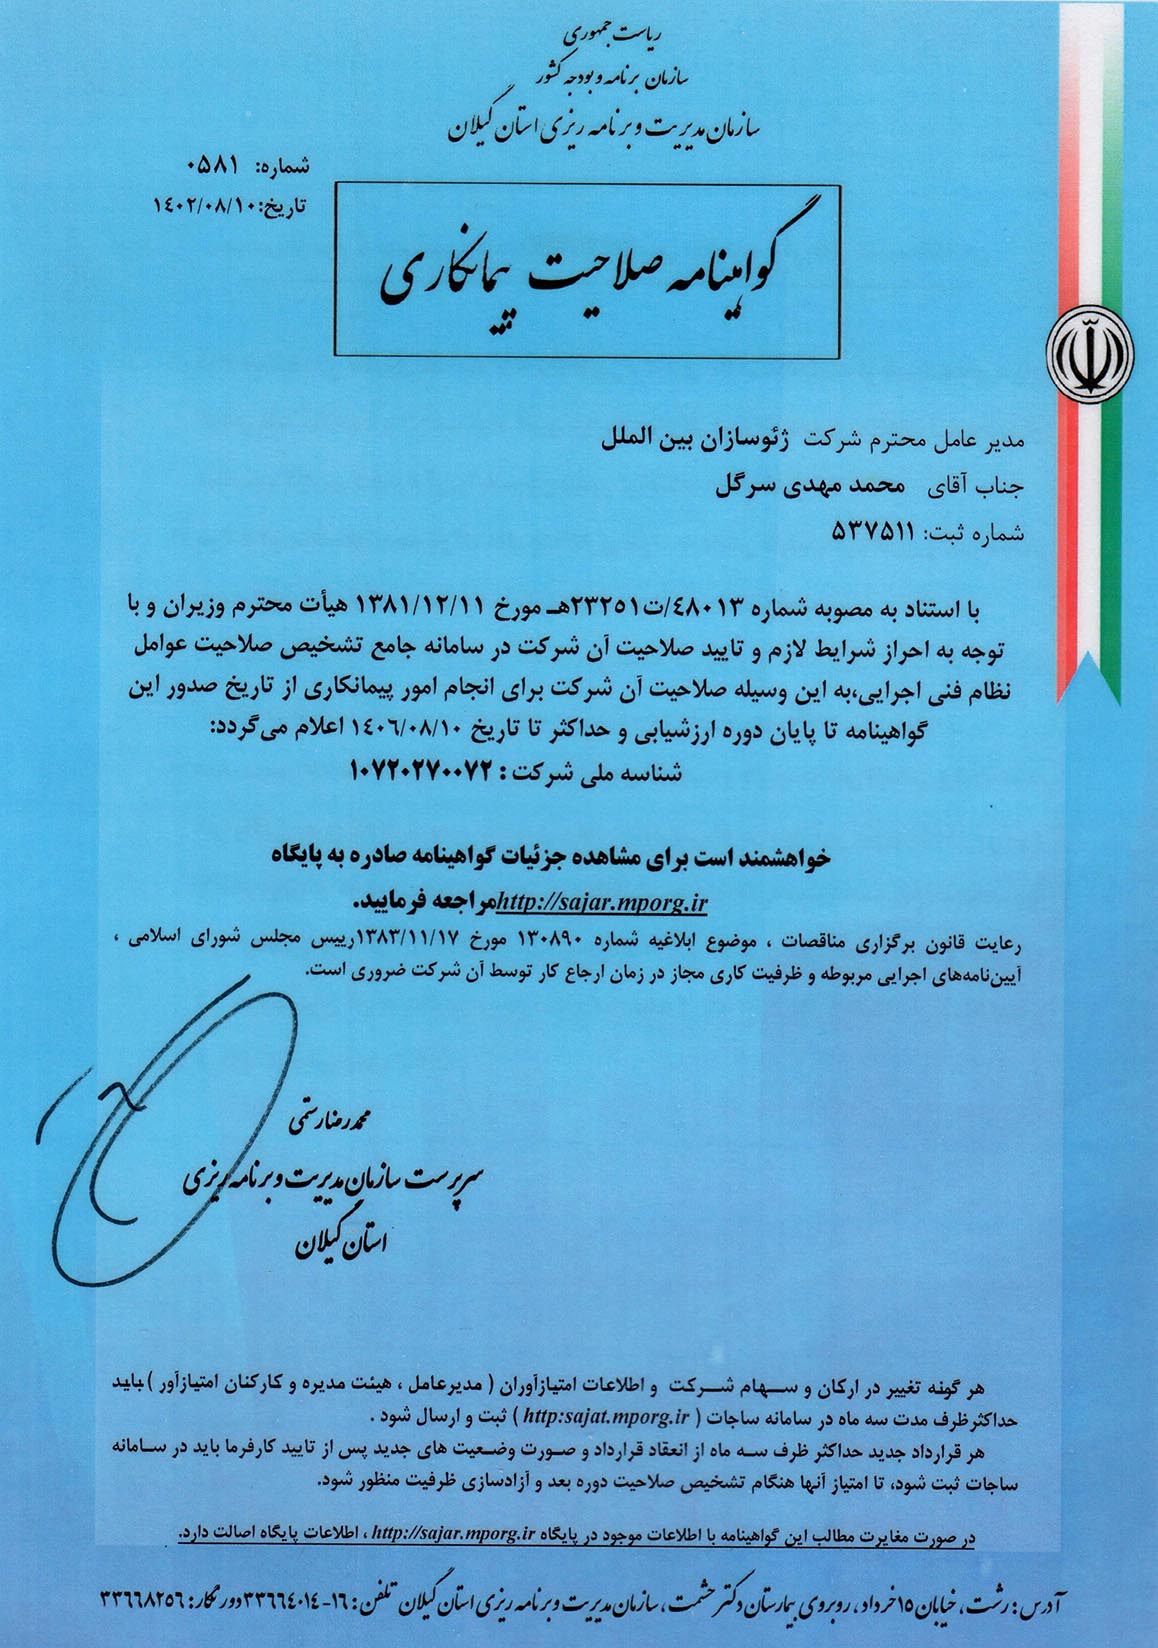 ریاست جمهوری
سازمان برنامه و بودجه کشور
سازمان مدیریت و برنامه ریزی استان گیلان
شماره: ۰۵۸۱
تاریخ: ۱۴۰۲/۰۸/۱۰
گواهینامه صلاحیت پیمانکاری
مدیر عامل محترم شرکت ژئوسازان بین الملل
جناب آقای محمد مهدی سرگل
شماره ثبت: ۵۳۷۵۱۱
با استناد به مصوبه شماره ۴۸۰۱۳/ت۲۳۲۵۱هـ مورخ ۱۳۸۱/۱۲/۱۱ هیأت محترم وزیران و با
توجه به احراز شرایط لازم و تایید صلاحیت آن شرکت در سامانه جامع تشخیص صلاحیت عوامل
نظام فنی اجرایی،به این وسیله صلاحیت آن شرکت برای انجام امور پیمانکاری از تاریخ صدور این
گواهینامه تا پایان دوره ارزشیابی و حداکثر تا تاریخ ۱۴۰۶/۰۸/۱۰ اعلام می‌گردد:
شناسه ملی شرکت : ۱۰۷۲۰۲۷۰۰۷۲
خواهشمند است برای مشاهده جزئیات گواهینامه صادره به پایگاه
http://sajar.mporg.ir مراجعه فرمایید.
رعایت قانون برگزاری مناقصات ، موضوع ابلاغیه شماره ۱۳۰۸۹۰ مورخ ۱۳۸۳/۱۱/۱۷رییس مجلس شورای اسلامی ،
آیین‌نامه‌های اجرایی مربوطه و ظرفیت کاری مجاز در زمان ارجاع کار توسط آن شرکت ضروری است.
محمدرضا رستمی
سرپرست سازمان مدیریت و برنامه ریزی
استان گیلان
هر گونه تغییر در ارکان و سهام شرکت و اطلاعات امتیازآوران ( مدیرعامل ، هیئت مدیره و کارکنان امتیازآور ) باید
حداکثرظرف مدت سه ماه در سامانه ساجات ( http:sajat.mporg.ir ) ثبت و ارسال شود .
هر قرارداد جدید حداکثر ظرف سه ماه از انعقاد قرارداد و صورت وضعیت های جدید پس از تایید کارفرما باید در سامانه
ساجات ثبت شود، تا امتیاز آنها هنگام تشخیص صلاحیت دوره بعد و آزادسازی ظرفیت منظور شود.
در صورت مغایرت مطالب این گواهینامه با اطلاعات موجود در پایگاه http://sajar.mporg.ir ، اطلاعات پایگاه اصالت دارد.
آدرس : رشت، خیابان ۱۵ خرداد، روبروی بیمارستان دکتر حشمت، سازمان مدیریت و برنامه ریزی استان گیلان تلفن : ۱۶-۳۳۶۶۴۰۱۴ دورنگار: ۳۳۶۶۸۲۵۶